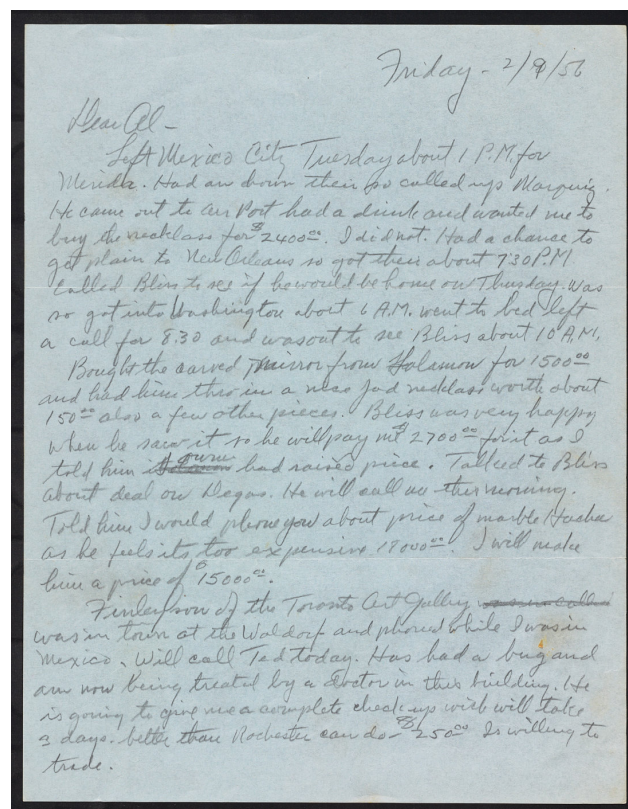 Friday - 2/9/56
Dear Al -
Left Mexico City Tuesday about 1 P.M. for
Merida. Had an hour their so called up Marquis.
He came out to air Port had a drink and wanted me to
buy the necklass for $2400.00. I did not. Had a chance to
get plain to New Orleans so got their about 730 P.M
Called Bliss to see if he would be home on Thusday. Was
so got into Washington about 6 A.M. went to bed left
a call for 8.30 and was out to see Bliss about 10 A.M.
Bought the carved mirror from Salamon for 1500.00
and had him thro in a nice Jad necklass worth about
150.00 also a few other pieces. Bliss was very happy
when he saw it so he will pay me $2700.00 for it as I
told him owner had raised price. Talked to Bliss
about deal on Degas. He will call me this morning.
Told him I would phone you about price of marble Hacha
as he feels its too expensive 18000.00. I will make
him a price of $15000.00.
Finlayson of the Toronto Art Gallery
was in town at the Waldorf and phoned while I was in
Mexico. Will call Ted today. Has had a bug and
am now being treated by a doctor in this building. He
is going to give me a complete check up wich will take
3 days. better than Rochester can do - $250.00 Is willing to
trade.